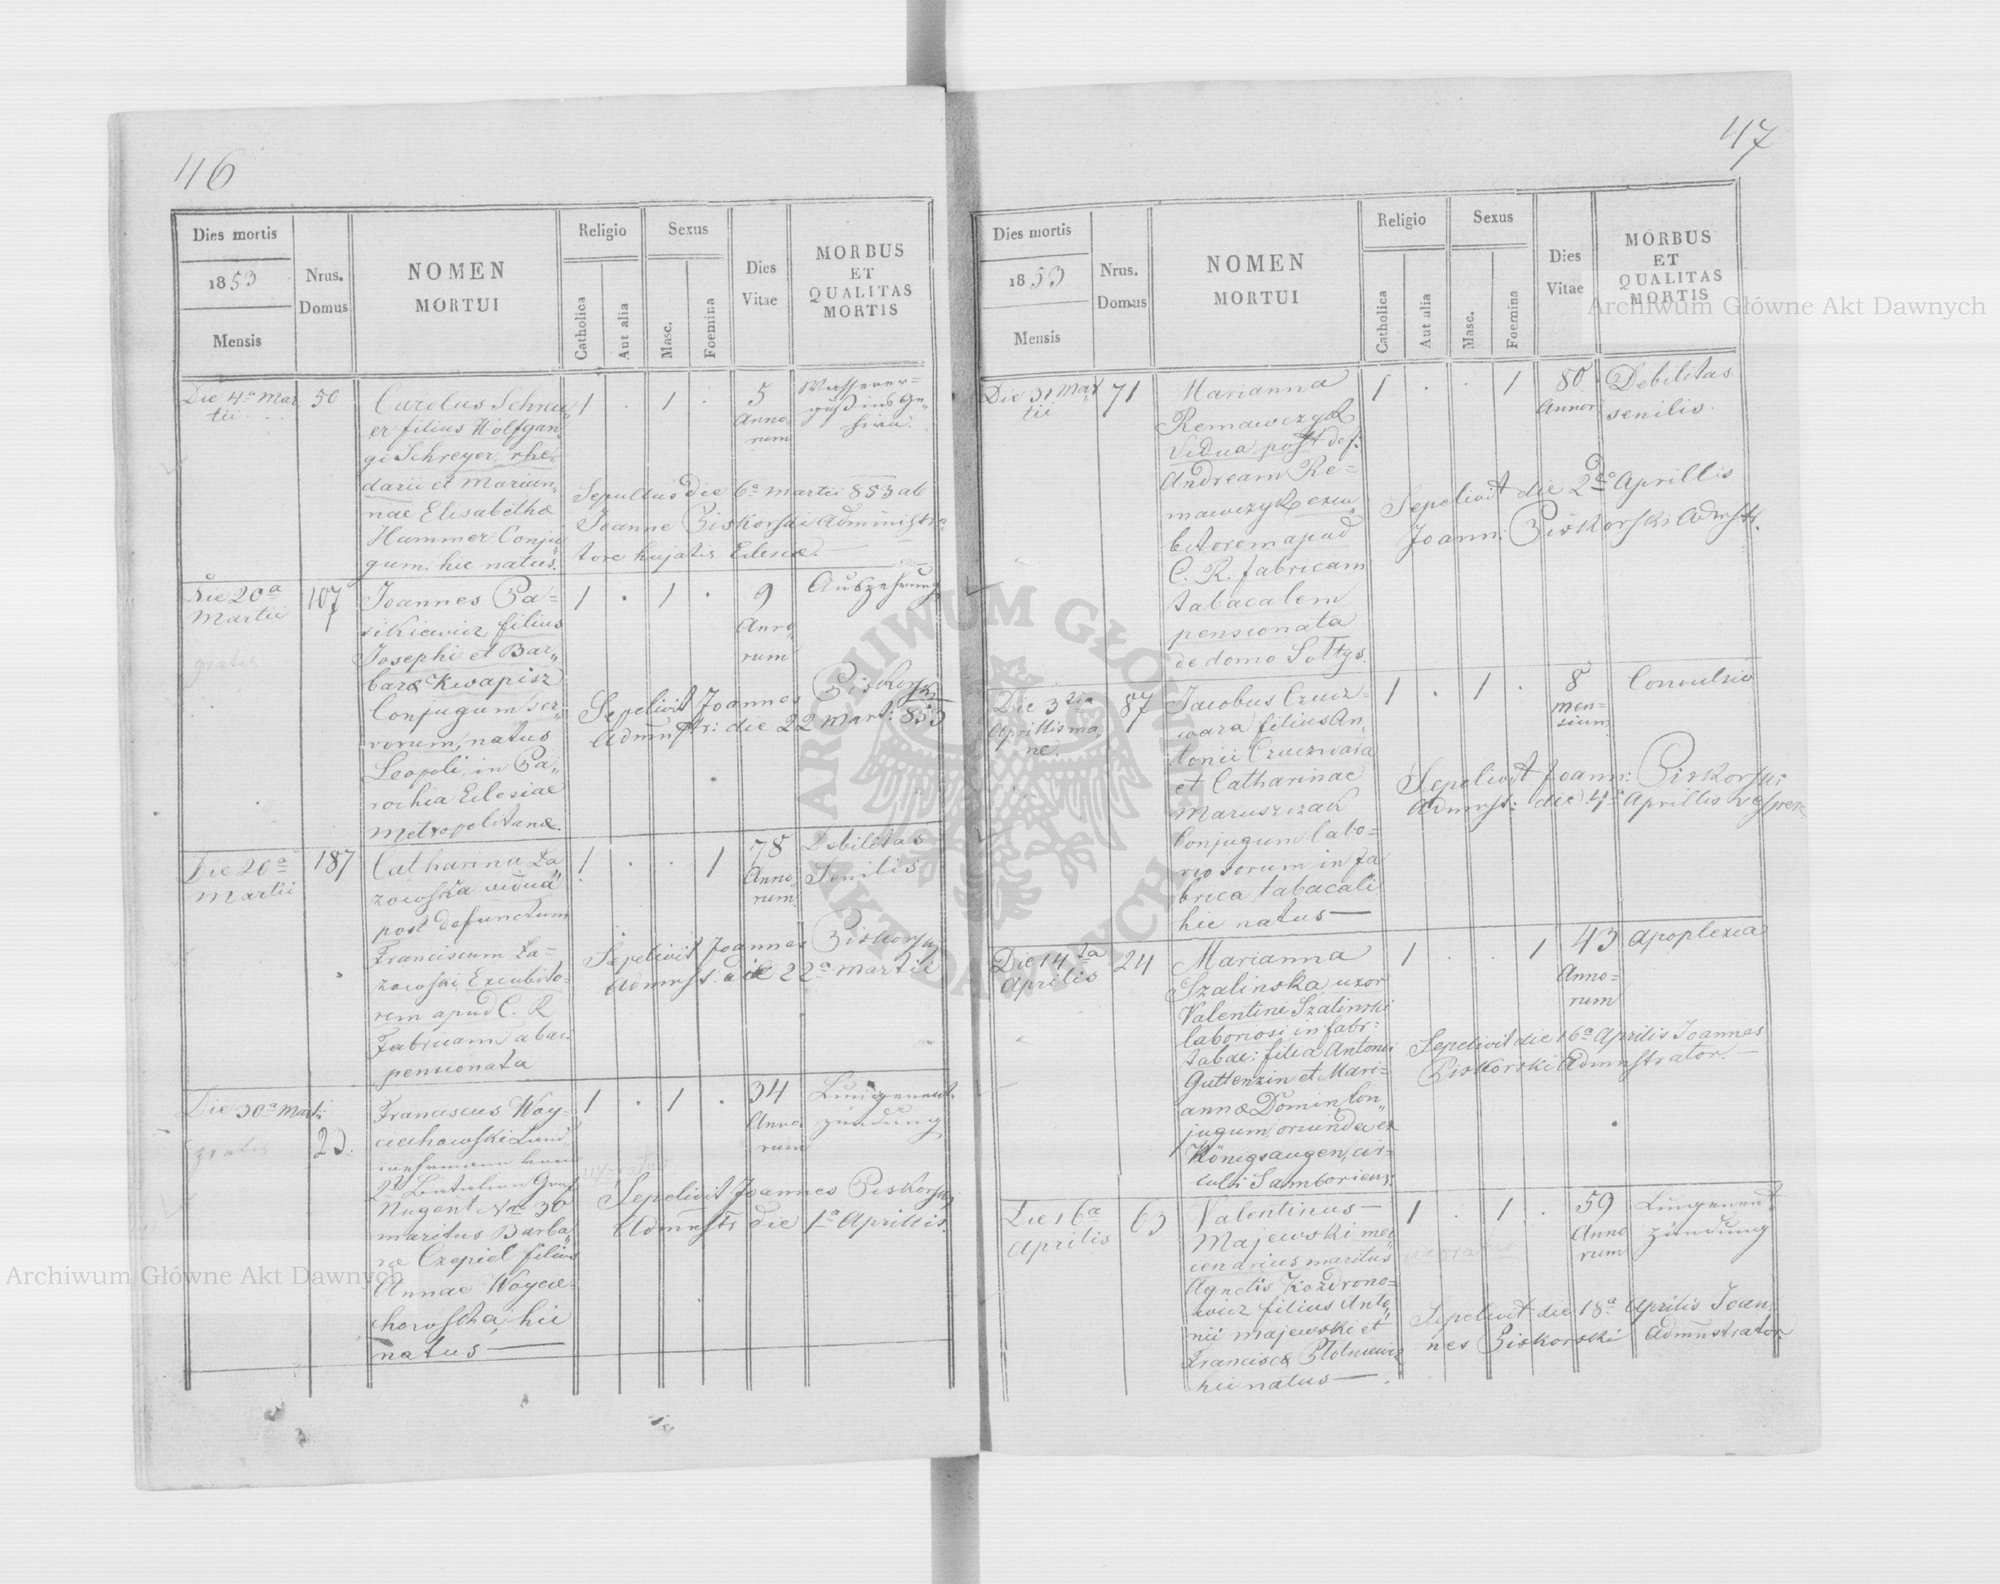 46
Dies mortis
1853
Mensis
Nrus. Domus
NOMEN
MORTUI
Religio
Catholica
Aut alia
Sexus
Masc.
Foemina
Dies
Vitae
MORBUS
ET
QUALITAS
MORTIS
Die 4a Mar
tii
50
Carolus Schrey„
er filius Wolfgan„
gi Schreyer, rhe„
darii et Marian„
nae Elisabethae
Hammer Conju„
gum. hic natus.
1 . 1 .
5
Anno„
rum
Wasserer=
guß ins Ge„
hirn.
Sepultus die 6a Martii 853 ab
Joanne Piskorski Administra
tore hujatis Eclesiae.
Die 20a
Martii
gratis
107
Joannes Pa=
sikiewicz filius
Josephi et Bar„
barae Kwapisz
Conjugum ser„
vorum, natus
Leopoli, in Pa„
rochia Eclesiae
Metropolitanae.
1 . 1 .
9
Anno„
rum
Auszehrung
Sepelivit Joannes Piskorski
Admnstr: die 22 Mart: 853
Die 20a
Martii
187
Catharina La„
zowska vidua
post defunctum
Franciscum La=
zowski Excubito=
rem apud C. R.
Fabricam Tabac.
pensionata
1 . . 1
78
Anno„
rum.
Debilitas
Senilis
Sepelivit Joannes Piskorski
Admnst. die 22a Martii
Die 30a Marti
gratis
23.
Franciscus Woy=
ciechowski Land
wehrmann
2t Bataleon Graf
Nugent Nro 30
maritus Barba„
rae Czepiel filius
Annae Woycie=
chowska, hic
natus
1 . 1 .
34
Anno
rum
Lungenent„
zündung
Sepelivit Joannes Piskorski
Admnstr die 1a Aprilis.
47
Dies mortis
1853.
Mensis
Nrus.
Domus
NOMEN
MORTUI
Religio
Catholica
Aut alia
Sexus
Masc.
Foemina
Dies
Vitae
MORBUS
ET
QUALITAS
MORTIS
Die 31 Mar
tii
71
Marianna
Remawczyk
Vidua post def:
Andream Re=
mawczyk excu„
bitorem apud
C. R. fabricam
tabacalem
pensionata
de domo Sołtys.
1 . . 1
80
Annor
Debilitas
senilis.
Sepelivit die 2da Aprillis
Joann: Piskorski Admstr.
Die 3tia
Aprillis ma
ne.
87
Jacobus Czucz=
wara filius An„
tonii Czuczwara
et Catharinae
Maruszczak
Conjugum labo=
riosorum in fa
brica tabacali
hic natus
1 . 1 .
8
men=
sium
Convulsio
Sepelivit Joann: Piskorski
Admnst: die 4ta Aprillis vesper.
Die 14ta
Aprilis
24
Marianna
Szalinska uxor
Valentini Szalinski
laboriosi in fabr:
tabac: filia Antonii
Guttenzin et Mari=
annae Domin, Con„
jugum, oriunda ex
Königsaugen, cir=
culi Samboriens.
1 . . 1
43
Anno=
rum
Apoplexia
Sepelivit die 16a Aprilis Joannes
Piskorski Admnstrator.
Die 16a
Aprilis
63
Valentinus
Majewski mer
cenarius maritus
Agnetis Kozdrono=
wicz filius Anto„
nii Majewski et
Franciscae
hic natus
1 . 1 .
59
Anno
rum
Lungenent„
zündung
Sepelivit die 18a Aprilis Joan„
nes Piskorski Admnstrator
ARCHIWUM GŁÓWNE
AKT DAWNYCH
Archiwum Główne Akt Dawnych
Archiwum Główne Akt Dawnych